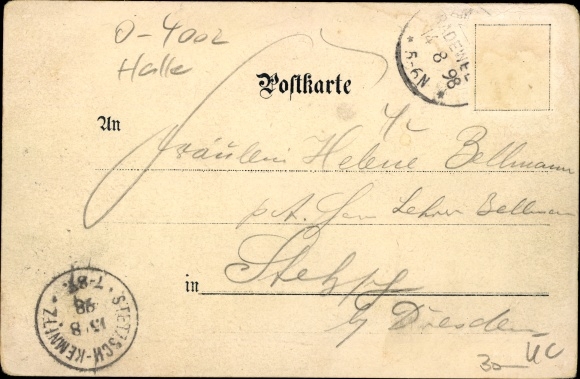 O-4002
Halle
RADEWELL
14 8 98
* 5-6N *
Postkarte
An
Fräulein Helene Bellmann
p. A. Herrn Lehrer Bellmann
in
b/ Dresden
STETZSCH-KEMNITZ
15 8
98
7-8V.
30-